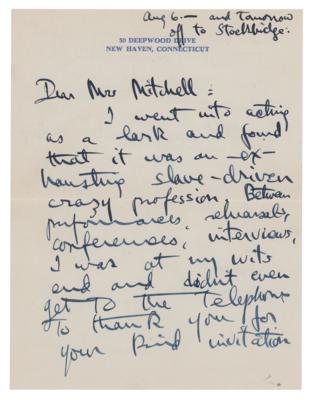 Aug 6.— and tomorrow
off to Stockbridge.
50 DEEPWOOD DRIVE
NEW HAVEN, CONNECTICUT
Dear Mrs Mitchell:
I went into acting
as a lark and found
that it was an ex-
hausting slave-driven
crazy profession. Between
performances, rehearsals,
conferences, interviews,
I was at my wits
end and didn't even
get to the telephone
to thank you for
your kind invitation